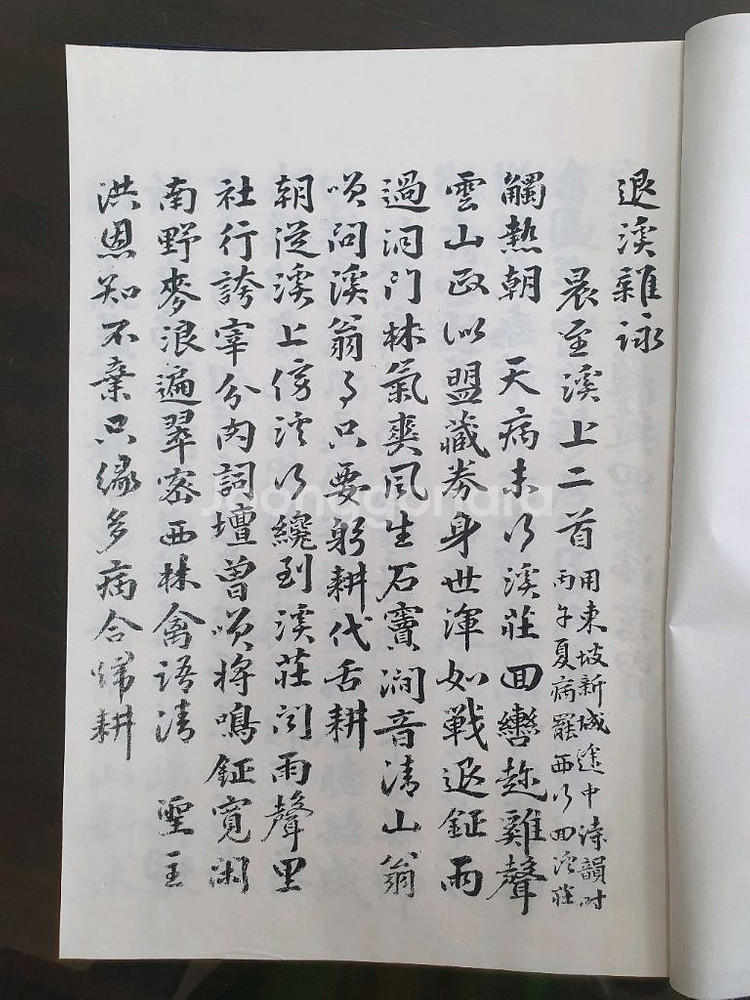 退溪雜詠
晨至溪上二首
用東坡新城途中詩韻時
丙午夏病罷西行回溪莊
觸熱朝 天病未行溪莊回轡趁雞聲
雲山政似盟藏券身世渾如戰退鉦雨
過洞門林氣爽風生石竇澗音清山翁
咲問溪翁事只要躬耕代舌耕
朝從溪上傍溪行纔到溪莊聞雨聲里
社行誇宰分肉詞壇曾咲將鳴鉦寬閑
南野麥浪遍翠密西林禽語清 聖主
洪恩知不棄只緣多病合歸耕
Joonggonara